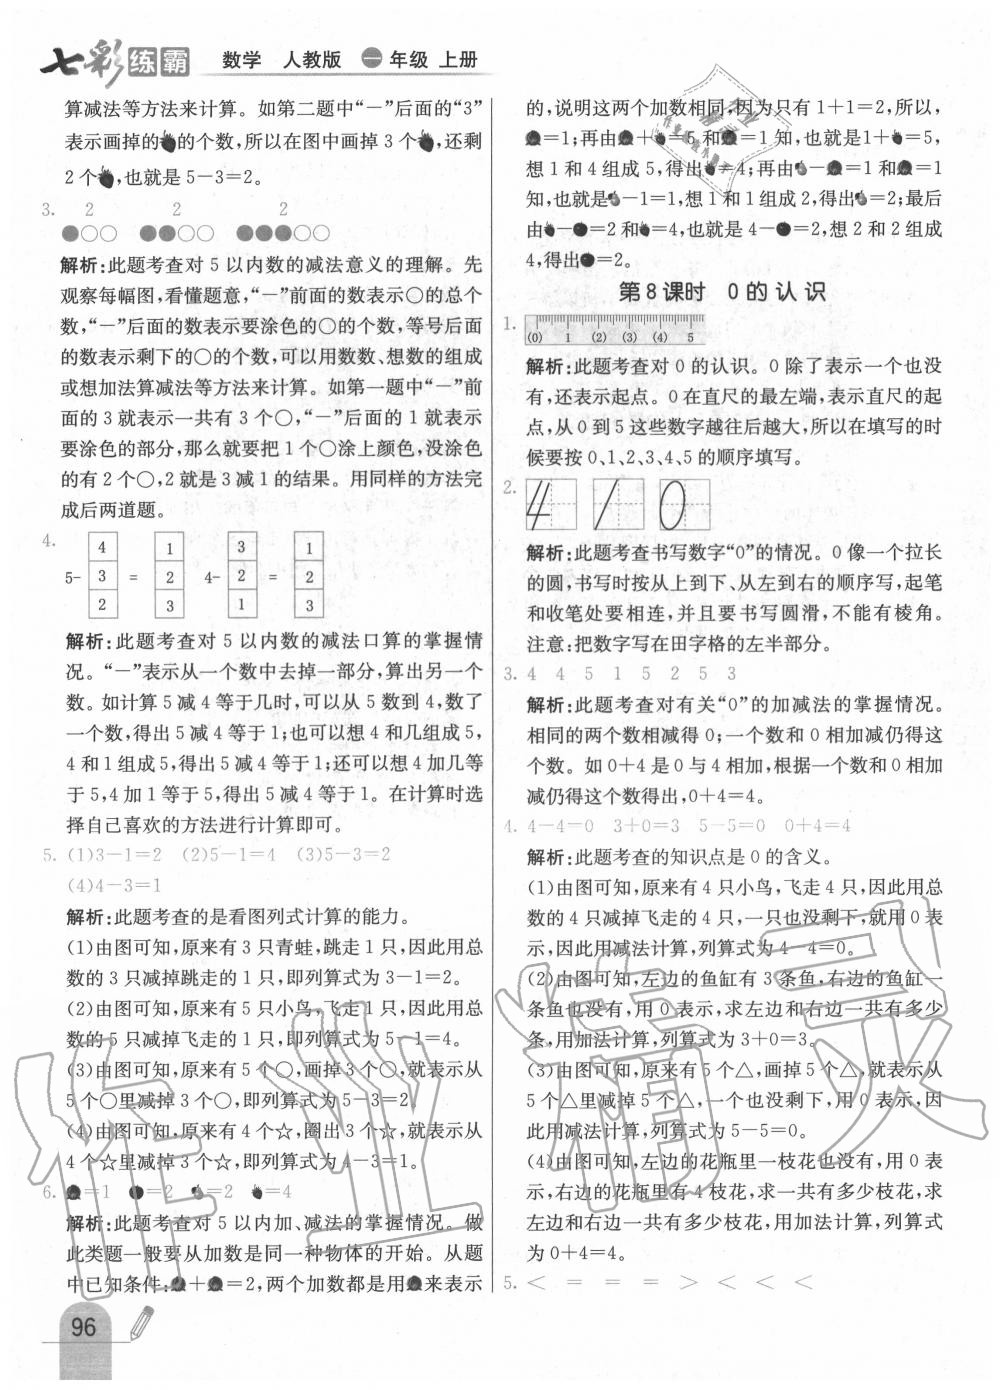 七彩练霸 数学 人教版 一年级 上册
算减法等方法来计算。如第二题中“－”后面的“3”
表示画掉的的个数,所以在图中画掉 3 个,还剩
2 个,也就是 5－3＝2。
3. 2 2 2
解析:此题考查对 5 以内数的减法意义的理解。先
观察每幅图,看懂题意,“－”前面的数表示○的总个
数,“－”后面的数表示要涂色的○的个数,等号后面
的数表示剩下的○的个数,可以用数数、想数的组成
或想加法算减法等方法来计算。如第一题中“－”前
面的 3 就表示一共有 3 个○,“－”后面的 1 就表示
要涂色的部分,那么就要把 1 个○涂上颜色,没涂色
的有 2 个○,2 就是 3 减 1 的结果。用同样的方法完
成后两道题。
4. 5- 4 3 2 = 1 2 3 4- 3 2 1 = 1 2 3
解析:此题考查对 5 以内数的减法口算的掌握情
况。“－”表示从一个数中去掉一部分,算出另一个
数。如计算 5 减 4 等于几时,可以从 5 数到 4,数了
一个数,得出 5 减 4 等于 1;也可以想 4 和几组成 5,
4 和 1 组成 5,得出 5 减 4 等于 1;还可以想 4 加几等
于 5,4 加 1 等于 5,得出 5 减 4 等于 1。在计算时选
择自己喜欢的方法进行计算即可。
5. (1)3－1＝2 (2)5－1＝4 (3)5－3＝2
(4)4－3＝1
解析:此题考查的是看图列式计算的能力。
(1)由图可知,原来有 3 只青蛙,跳走 1 只,因此用总
数的 3 只减掉跳走的 1 只,即列算式为 3－1＝2。
(2)由图可知,原来有 5 只小鸟,飞走 1 只,因此用总
数的 5 只减掉飞走的 1 只,即列算式为 5－1＝4。
(3)由图可知,原来有 5 个○,画掉 3 个○,就表示从
5 个○里减掉 3 个○,即列算式为 5－3＝2。
(4)由图可知,原来有 4 个☆,圈出 3 个☆,就表示从
4 个☆里减掉 3 个☆,即列算式为 4－3＝1。
6. ＝1 ＝2 ＝2 ＝4
解析:此题考查对 5 以内加、减法的掌握情况。做
此类题一般要从加数是同一种物体的开始。从题
中已知条件:＋＝2,两个加数都是用来表示
的,说明这两个加数相同,因为只有 1＋1＝2,所以,
＝1;再由＋＝5 和＝1 知,也就是1＋＝5,
想 1 和 4 组成 5,得出＝4;再由－＝1 和＝1
知,也就是－1＝1,想 1 和 1 组成 2,得出＝2;最后
由－＝2 和＝4,也就是 4－＝2,想 2 和 2 组成
4,得出＝2。
第 8 课时 0 的 认 识
1. (0) 1 (2) (3) (4) 5
解析:此题考查对 0 的认识。0 除了表示一个也没
有,还表示起点。0 在直尺的最左端,表示直尺的起
点,从 0 到 5 这些数字越往后越大,所以在填写的时
候要按 0、1、2、3、4、5 的顺序填写。
2. 4 1 0
解析:此题考查书写数字“0”的情况。0 像一个拉长
的圆,书写时按从上到下、从左到右的顺序写,起笔
和收笔处要相连,并且要书写圆滑,不能有棱角。
注意:把数字写在田字格的左半部分。
3. 4 4 5 1 5 2 5 3
解析:此题考查对有关“0”的加减法的掌握情况。
相同的两个数相减得 0;一个数和 0 相加减仍得这
个数。如 0＋4 是 0 与 4 相加,根据一个数和 0 相加
减仍得这个数得出,0＋4＝4。
4. 4－4＝0 3＋0＝3 5－5＝0 0＋4＝4
解析:此题考查的知识点是 0 的含义。
(1)由图可知,原来有 4 只小鸟,飞走 4 只,因此用总
数的 4 只减掉飞走的 4 只,一只也没剩下,就用 0 表
示,因此用减法计算,列算式为 4－4＝0。
(2)由图可知,左边的鱼缸有 3 条鱼,右边的鱼缸一
条鱼也没有,用 0 表示,求左边和右边一共有多少
条,用加法计算,列算式为 3＋0＝3。
(3)由图可知,原来有 5 个△,画掉 5 个△,就表示从
5 个△里减掉 5 个△,一个也没剩下,用 0 表示,因
此用减法计算,列算式为 5－5＝0。
(4)由图可知,左边的花瓶里一枝花也没有,用 0 表
示,右边的花瓶里有 4 枝花,求一共有多少枝花,求
左边和右边一共有多少枝花,用加法计算,列算式
为 0＋4＝4。
5. ＜ ＝ ＝ ＝ ＞ ＜ ＜ ＜
96
作业精灵